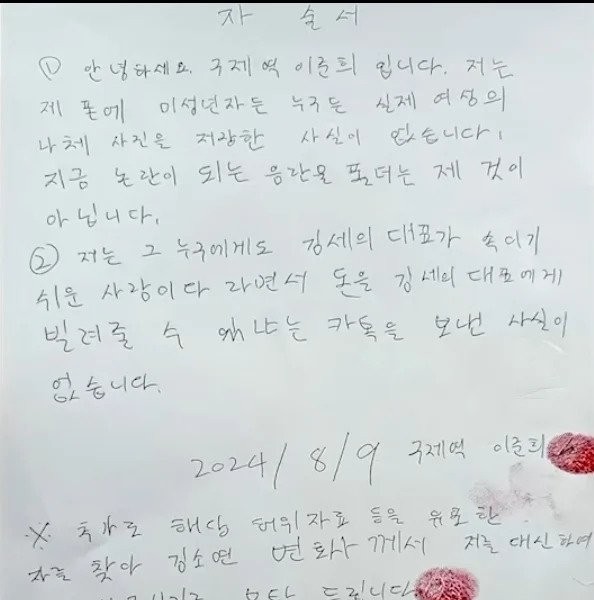 자 술 서
① 안녕하세요. 구제역 이준희 입니다. 저는
제 폰에 미성년자든 누구든 실제 여성의
나체 사진을 저장한 사실이 없습니다.
지금 논란이 되는 음란물 폴더는 제 것이
아닙니다.
② 저는 그 누구에게도 김세의 대표가 속이기
쉬운 사람이다 라면서 돈을 김세의 대표에게
빌려줄 수 있냐는 카톡을 보낸 사실이
없습니다.
2024/8/9 구제역 이준희
※ 추가로 해당 허위자료 등을 유포한
자를 찾아 김소연 변화사께서 저를 대신하여
부탁 드립니다